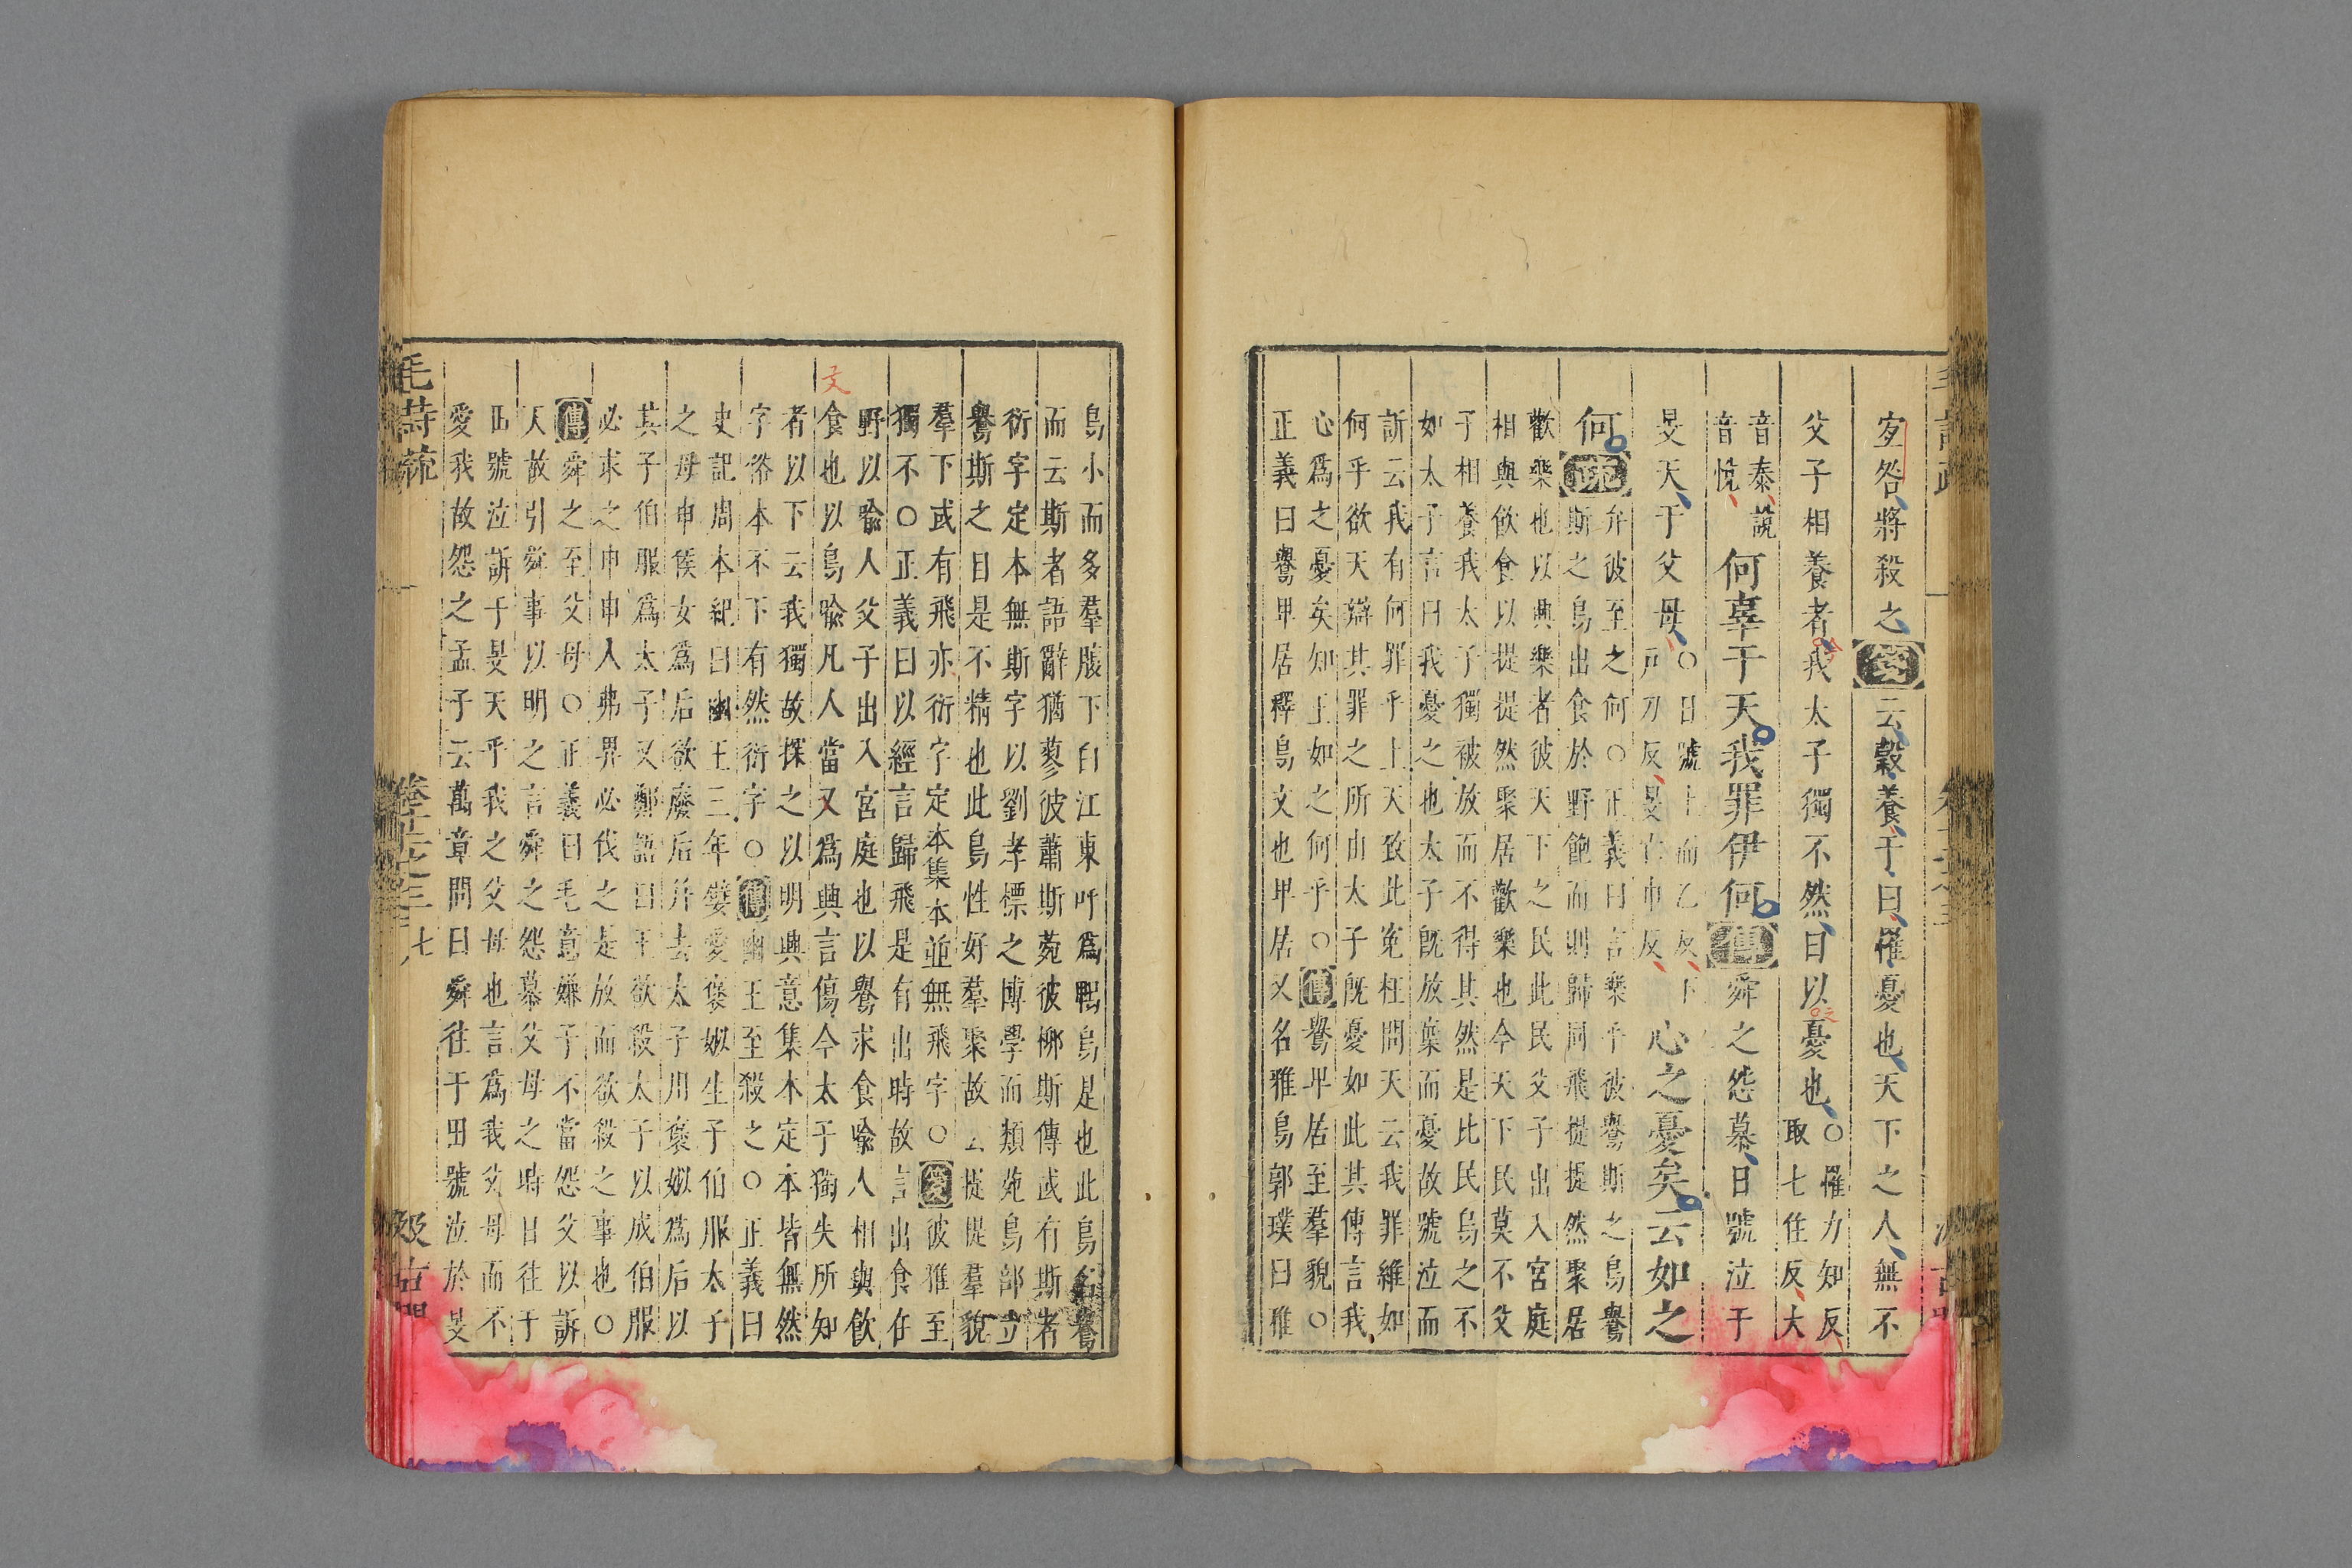 宜咎將殺之箋云穀養于曰罹憂也天下之人無不
父子相養者我太子獨不然曰以憂也○罹力知反
取七住反大
音泰說
音悅
何辜于天我罪伊何傳舜之怨慕日號泣于
旻天于父母○日號上而乙反下
戸刀反旻亡巾反
心之憂矣云如之
何疏
弁彼至之何○正義曰言樂乎彼鸒斯之鳥鸒
斯之鳥出食於野飽而則歸同飛提提然聚居
歡樂也以興樂者彼天下之民此民父子出入宮庭
相與飲食以提提然聚居歡樂也今天下民莫不父
子相養我太子獨被放而不得其然是比民鳥之不
如太子言曰我憂之也太子旣放棄而憂故號泣而
訴云我有何罪乎上天致此寃枉問天云我罪維如
何乎欲天辯其罪之所由太子旣憂如此其傅言我
心爲之憂矣知王如之何乎○傳鸒卑居至羣貌○
正義曰鸒卑居釋鳥文也卑居又名雅烏郭璞曰雅
烏小而多羣腹下白江東呼爲鵯烏是也此鳥名鸒
而云斯者語辭猶蓼彼蕭斯菀彼柳斯傳或有斯者
衍字定本無斯字以劉孝標之博學而類苑鳥部立
鸒斯之目是不精也此鳥性好羣聚故云提提羣貌
羣下或有飛亦衍字定本集本並無飛字○箋彼雅至
獨不○正義曰以經言歸飛是有出時故言出食在
野以喻人父子出入宮庭也以鸒求食喻人相與飲
食也以鳥喻凡人當又爲興言傷今太子獨失所知
者以下云我獨故探之以明興意集本定本皆無然
字俗本不下有然衍字○傳幽王至殺之○正義曰
史記周本紀曰幽王三年嬖愛褒姒生子伯服太子
之母申侯女爲后欲廢后并去太子用褒姒爲后以
其子伯服爲太子又鄭語曰王欲殺太子以成伯服
必求之申申人弗畀必伐之是放而欲殺之事也○
傳舜之至父母○正義曰毛意嫌子不當怨父以訴
天故引舜事以明之言舜之怨慕父母之時日往于
田號泣訴于旻天乎我之父母也言爲我父母而不
愛我故怨之孟子云萬章問曰舜往于田號泣於旻
毛詩疏
卷十二之三
七
汲古閣